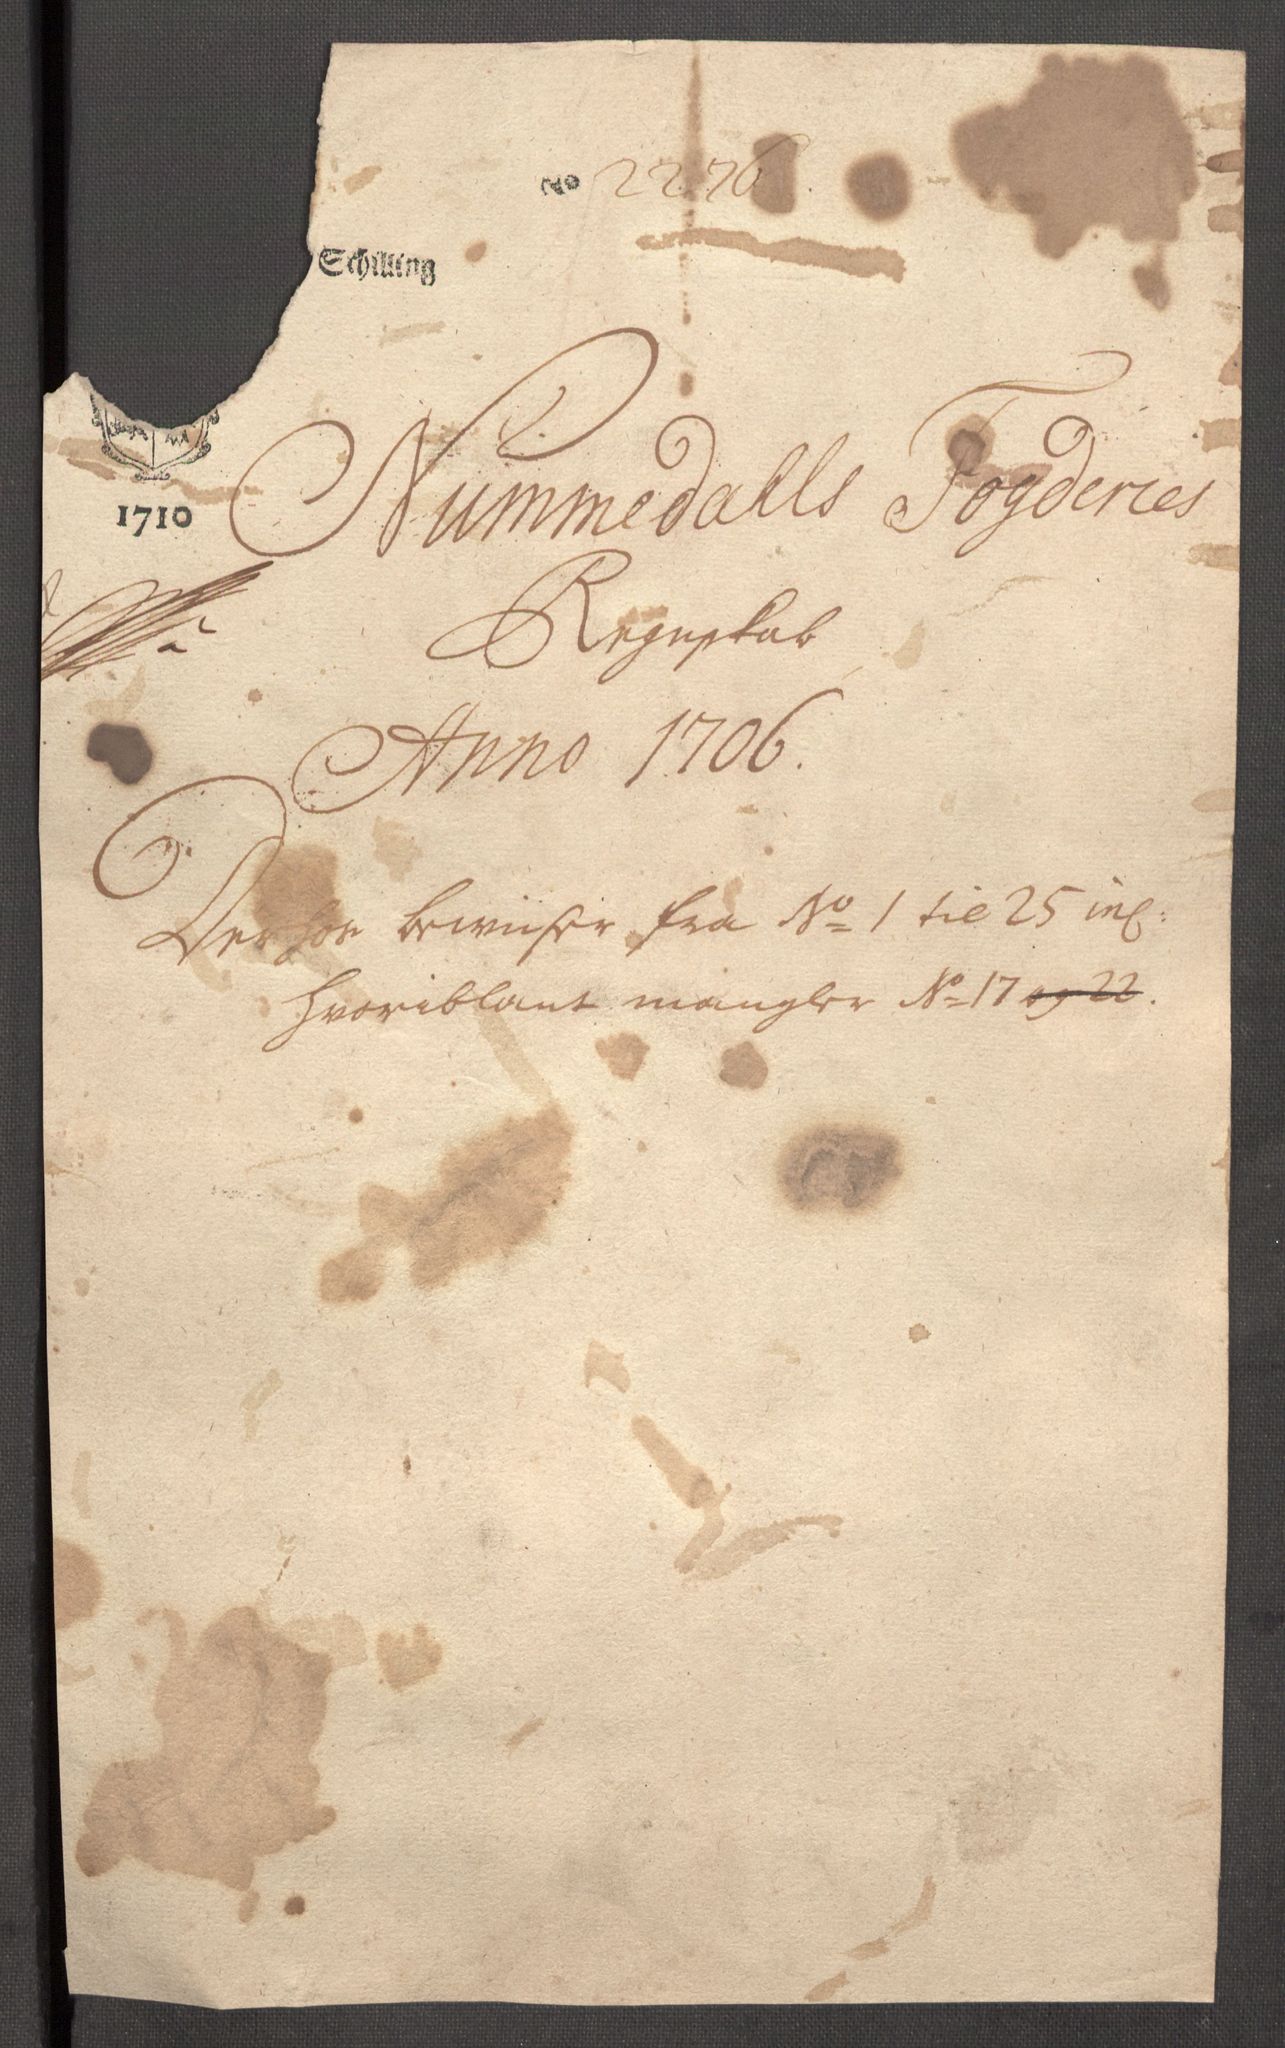 No 2276
Schilling
1710
Nummedalls Fogderies
Regnskab
Anno 1706.
Derhos bewiiser fra No 1 til 25 incl:
hvoriblant mangler No 17 og 22.